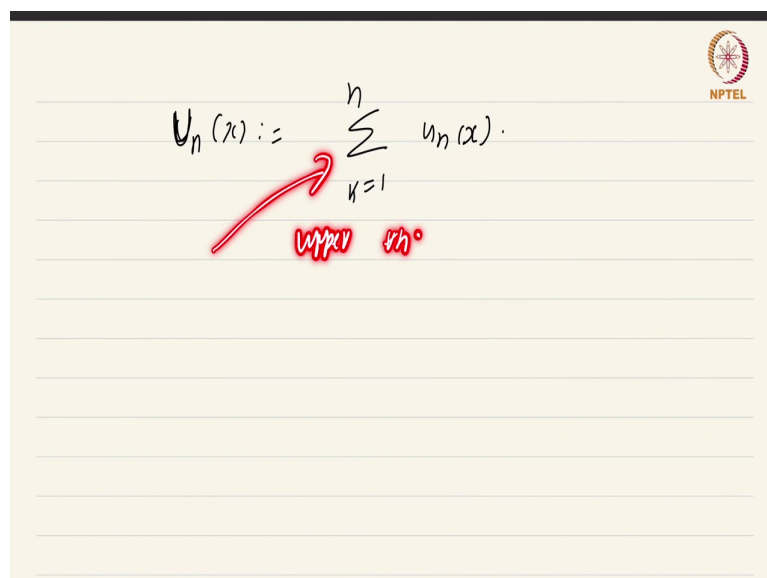 NPTEL
U_n(x) := \sum_{k=1}^{n} u_n(x).
upper